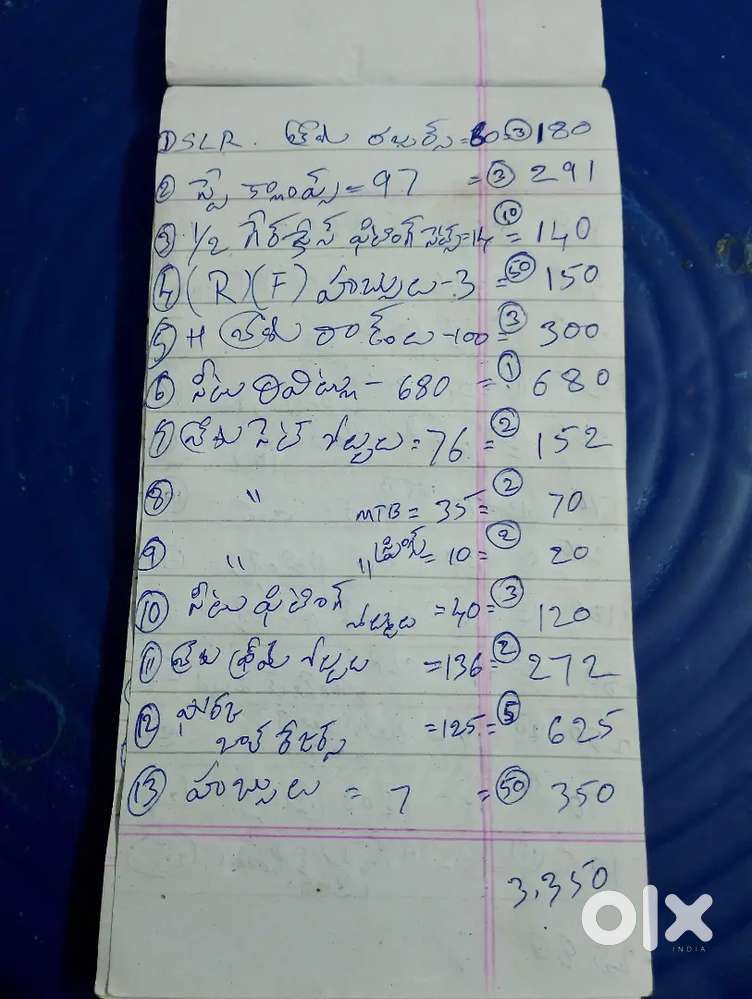 ① DSLR. బ్రేకు రబ్బర్స్ = 60 = ③ 180
② స్పై క్లాంప్స్ = 97 = ③ 291
③ 1/2 గేర్ ఫిటింగ్ సెట్స్ = 14 = ⑩ 140
④ (R) (F) హబ్బులు - 3 = ㊿ 150
⑤ H బ్రేకు రాడ్లు - 100 = ③ 300
⑥ సీటు - 680 = ① 680
⑦ బ్రేకు సెట్ నట్టులు = 76 = ② 152
⑧ " MTB = 35 = ② 70
⑨ " " = 10 = ② 20
⑩ సీటు ఫిటింగ్ నట్టులు = 40 = ③ 120
⑪ బ్రేకు నట్టులు = 136 = ② 272
⑫ = 125 = ⑤ 625
⑬ హబ్బులు = 7 = ㊿ 350
3,350
olx
INDIA